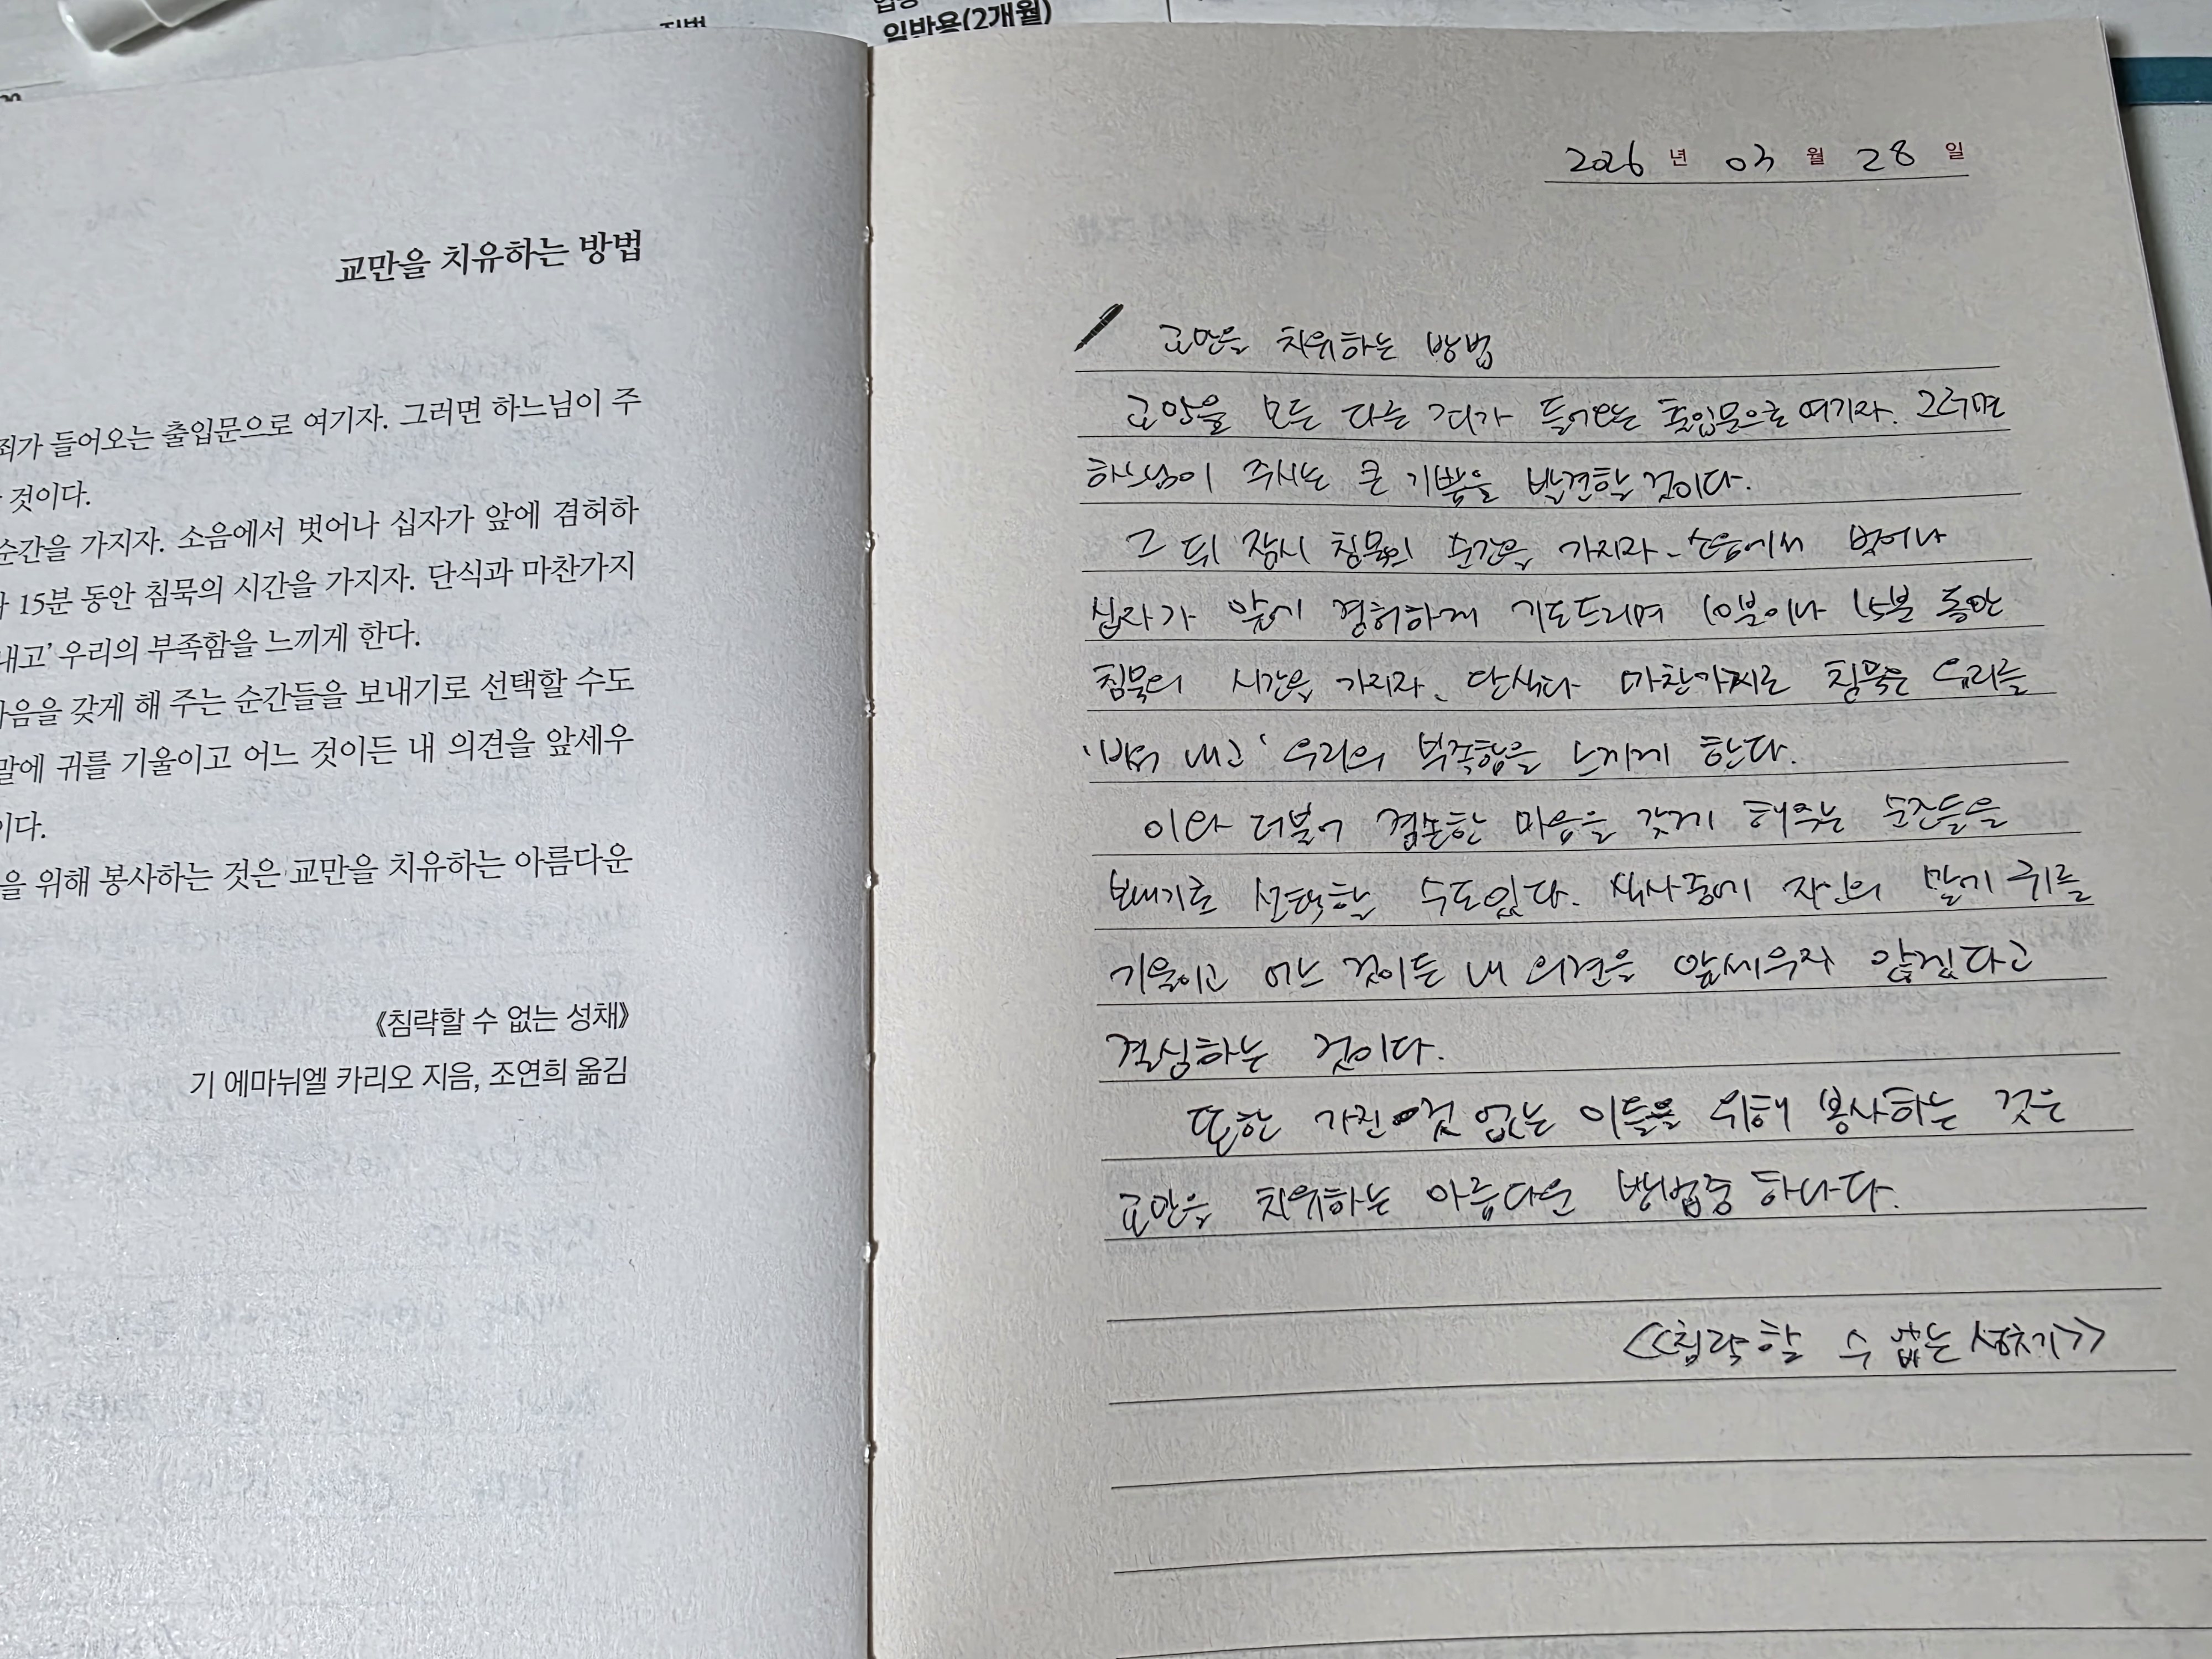 일반용(2개월)
교만을 치유하는 방법
죄가 들어오는 출입문으로 여기자. 그러면 하느님이 주
것이다.
순간을 가지자. 소음에서 벗어나 십자가 앞에 겸허하
15분 동안 침묵의 시간을 가지자. 단식과 마찬가지
내고' 우리의 부족함을 느끼게 한다.
마음을 갖게 해 주는 순간들을 보내기로 선택할 수도
말에 귀를 기울이고 어느 것이든 내 의견을 앞세우
이다.
을 위해 봉사하는 것은 교만을 치유하는 아름다운
《침략할 수 없는 성채》
기 에마뉘엘 카리오 지음, 조연희 옮김
2026 년 03 월 28 일
교만을 치유하는 방법
교만을 모든 다른 죄가 들어오는 출입문으로 여기자. 그러면
하느님이 주시는 큰 기쁨을 발견할 것이다.
그 뒤 잠시 침묵의 순간을 가지자. 소음에서 벗어나
십자가 앞에 겸허하게 기도드리며 10분이나 15분 동안
침묵의 시간을 가지자. 단식과 마찬가지로 침묵은 우리를
내고' 우리의 부족함을 느끼게 한다.
이와 더불어 겸손한 마음을 갖게 해주는 순간들을
보내기로 선택할 수도있다. 식사중에 타인의 말에 귀를
기울이고 어느 것이든 내 의견을 앞세우지 않겠다고
결심하는 것이다.
또한 가진 것 없는 이들을 위해 봉사하는 것은
교만을 치유하는 아름다운 방법중 하나다.
<<침략할 수 없는 성채>>